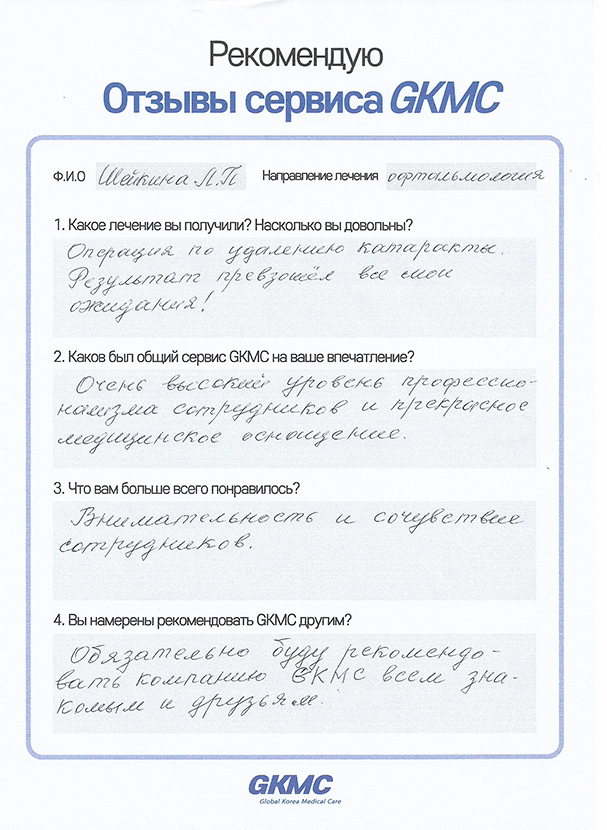 Рекомендую
Отзывы сервиса GKMC
Ф.И.О Шейкина Л.П. Направление лечения офтальмология
1. Какое лечение вы получили? Насколько вы довольны?
Операция по удалению катаракты.
Результат превзошёл все мои
ожидания!
2. Каков был общий сервис GKMC на ваше впечатление?
Очень высокий уровень профессио-
нализма сотрудников и прекрасное
медицинское оснащение.
3. Что вам больше всего понравилось?
Внимательность и сочувствие
сотрудников.
4. Вы намерены рекомендовать GKMC другим?
Обязательно буду рекомендо-
вать компанию GKMC всем зна-
комым и друзьям.
GKMC
Global Korea Medical Care